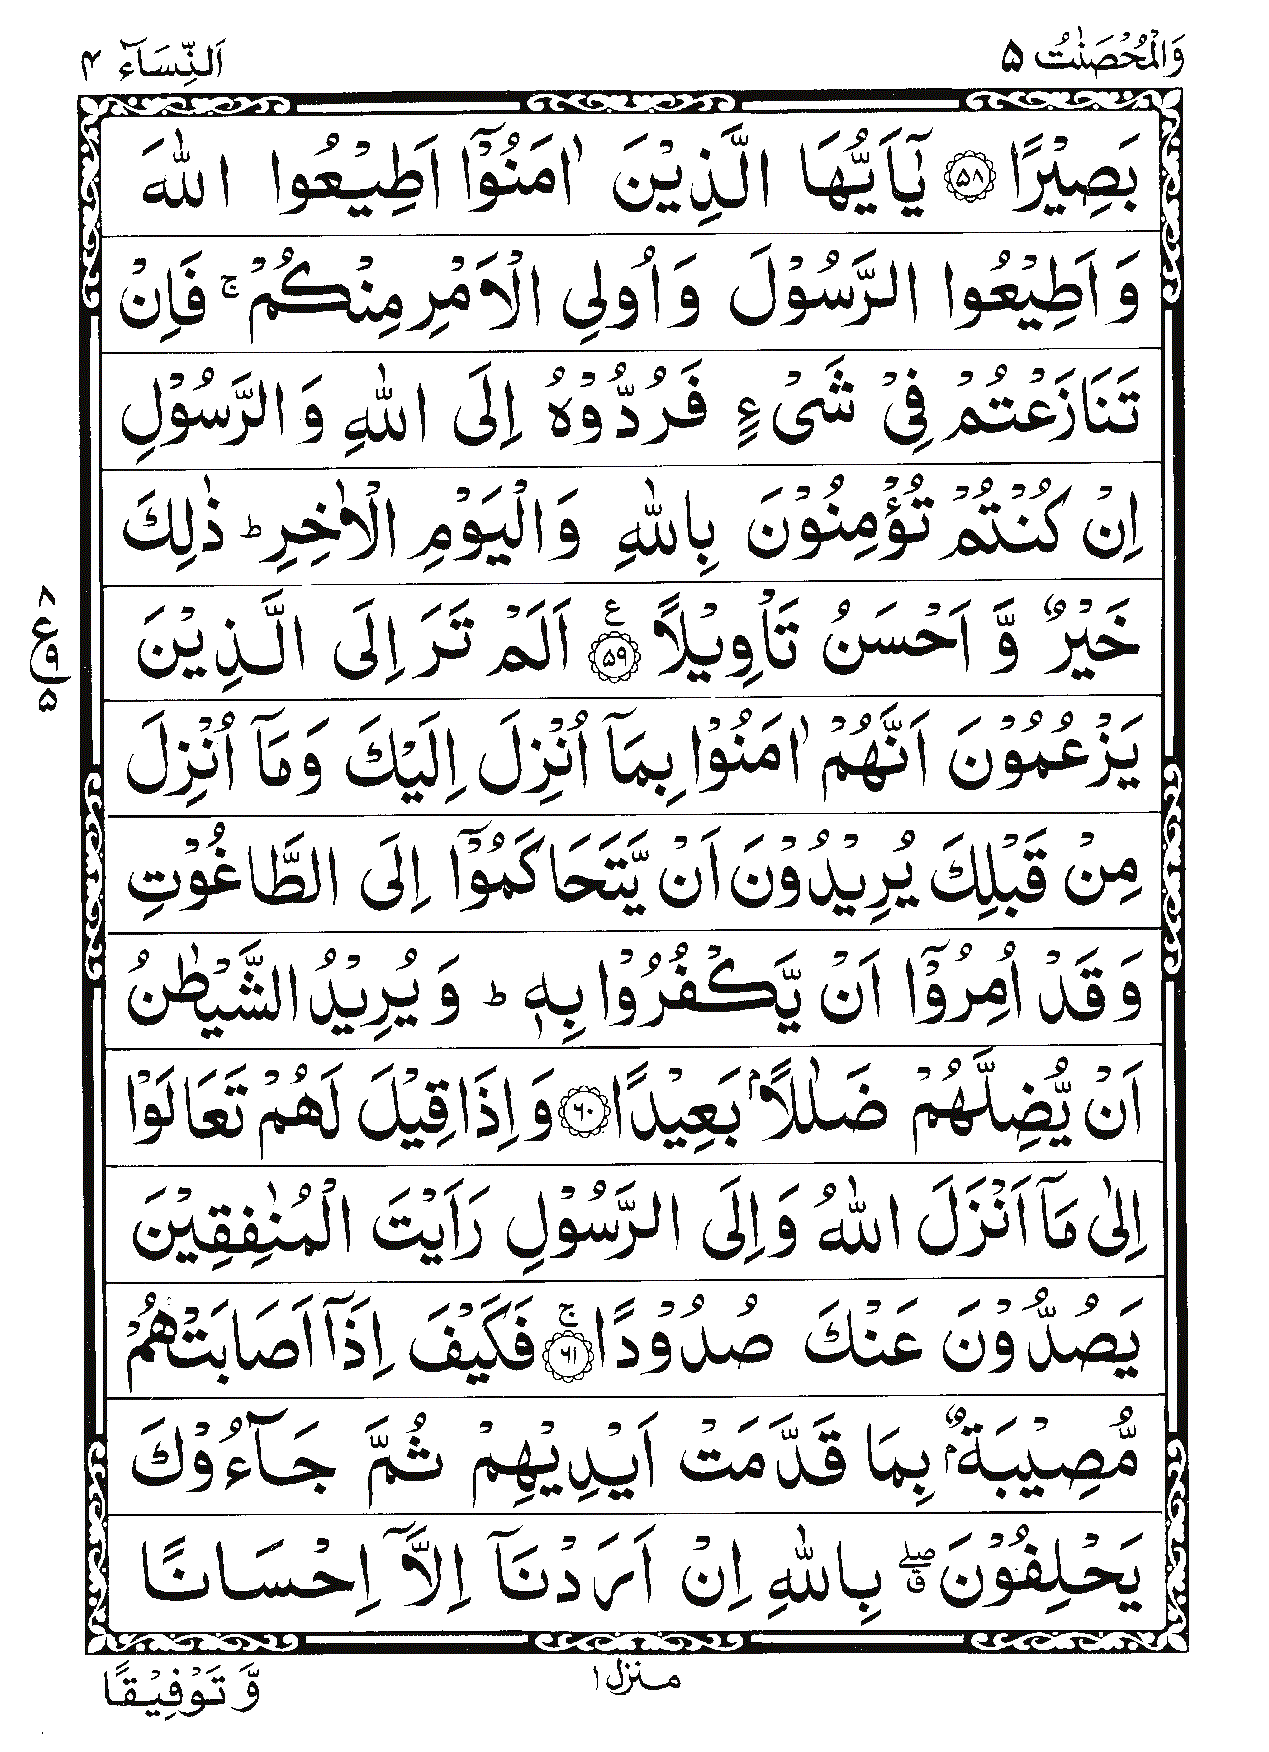 وَالْمُحْصَنٰتُ ۵
اَلنِّسَآء ۴
بَصِیْرًا ﴿۵۸﴾ یٰۤاَیُّهَا الَّذِیْنَ اٰمَنُوْۤا اَطِیْعُوا اللّٰهَ
وَ اَطِیْعُوا الرَّسُوْلَ وَ اُولِی الْاَمْرِ مِنْكُمْ ۚ فَاِنْ
تَنَازَعْتُمْ فِیْ شَیْءٍ فَرُدُّوْهُ اِلَی اللّٰهِ وَ الرَّسُوْلِ
اِنْ كُنْتُمْ تُؤْمِنُوْنَ بِاللّٰهِ وَ الْیَوْمِ الْاٰخِرِ ؕ ذٰلِكَ
خَیْرٌ وَّ اَحْسَنُ تَاْوِیْلًا ﴿۵۹﴾ ع اَلَمْ تَرَ اِلَی الَّذِیْنَ
۸
ع ۹
۵
یَزْعُمُوْنَ اَنَّهُمْ اٰمَنُوْا بِمَاۤ اُنْزِلَ اِلَیْكَ وَ مَاۤ اُنْزِلَ
مِنْ قَبْلِكَ یُرِیْدُوْنَ اَنْ یَّتَحَاكَمُوْۤا اِلَی الطَّاغُوْتِ
وَ قَدْ اُمِرُوْۤا اَنْ یَّكْفُرُوْا بِهٖ ؕ وَ یُرِیْدُ الشَّیْطٰنُ
اَنْ یُّضِلَّهُمْ ضَلٰلًۢا بَعِیْدًا ﴿۶۰﴾ وَ اِذَا قِیْلَ لَهُمْ تَعَالَوْا
اِلٰی مَاۤ اَنْزَلَ اللّٰهُ وَ اِلَی الرَّسُوْلِ رَاَیْتَ الْمُنٰفِقِیْنَ
یَصُدُّوْنَ عَنْكَ صُدُوْدًا ﴿۶۱﴾ ۚ فَكَیْفَ اِذَاۤ اَصَابَتْهُمْ
مُّصِیْبَةٌۢ بِمَا قَدَّمَتْ اَیْدِیْهِمْ ثُمَّ جَآءُوْكَ
یَحْلِفُوْنَ ۖۗ بِاللّٰهِ اِنْ اَرَدْنَاۤ اِلَّاۤ اِحْسَانًا
منزل ۱
وَّ تَوْفِیْقًا